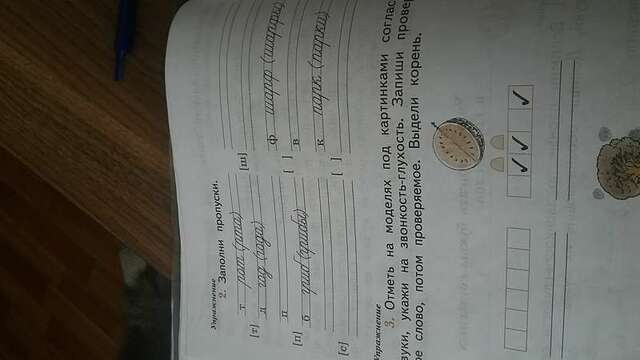 Упражнение
2. Заполни пропуски.
[т]
т рот (рта)
д год (года)
[п]
п
б гриб (грибы)
[с]
[ш]
[ ]
ф шарф (шарфы)
в
[ ]
к парк (парки)
Упражнение
3. Отметь на моделях под картинками соглас
вуки, укажи на звонкость-глухость. Запиши прове
ое слово, потом проверяемое. Выдели корень.